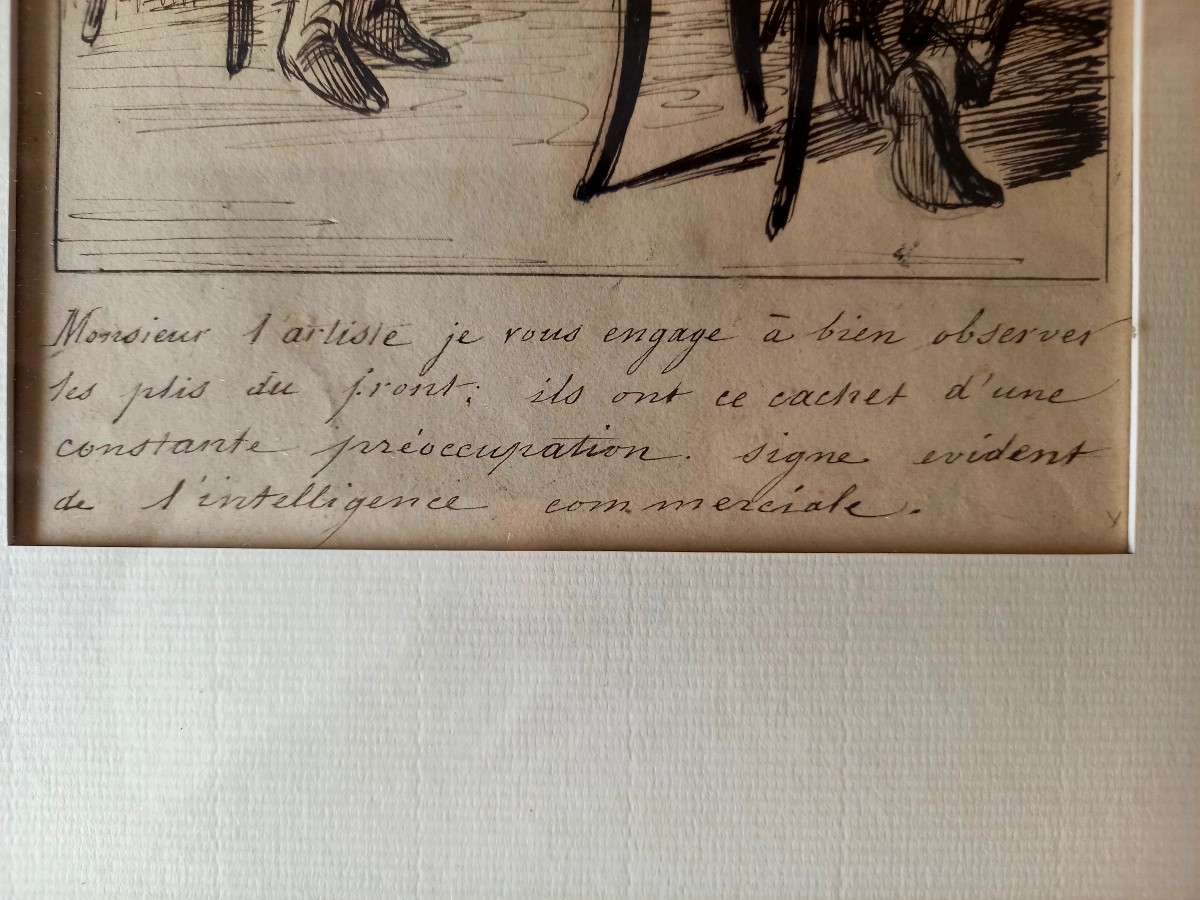 Monsieur l'artiste je vous engage à bien observer
les plis du front; ils ont ce cachet d'une
constante préoccupation. signe evident
de l'intelligence commerciale.